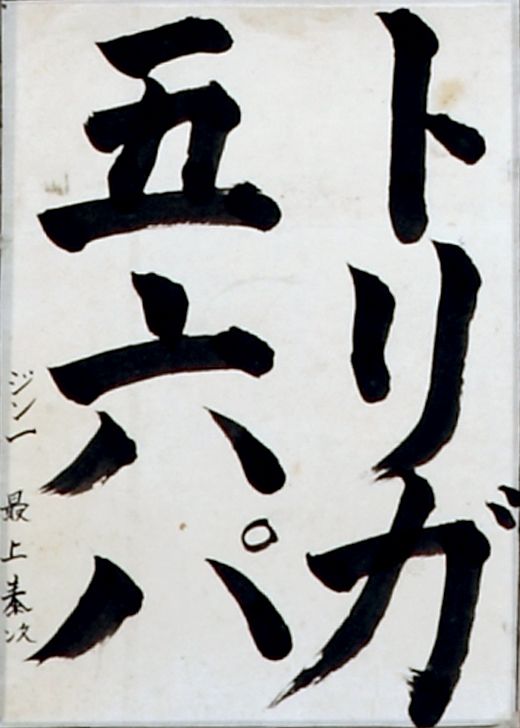 トリガ
五六パ
ジン一 最上泰次